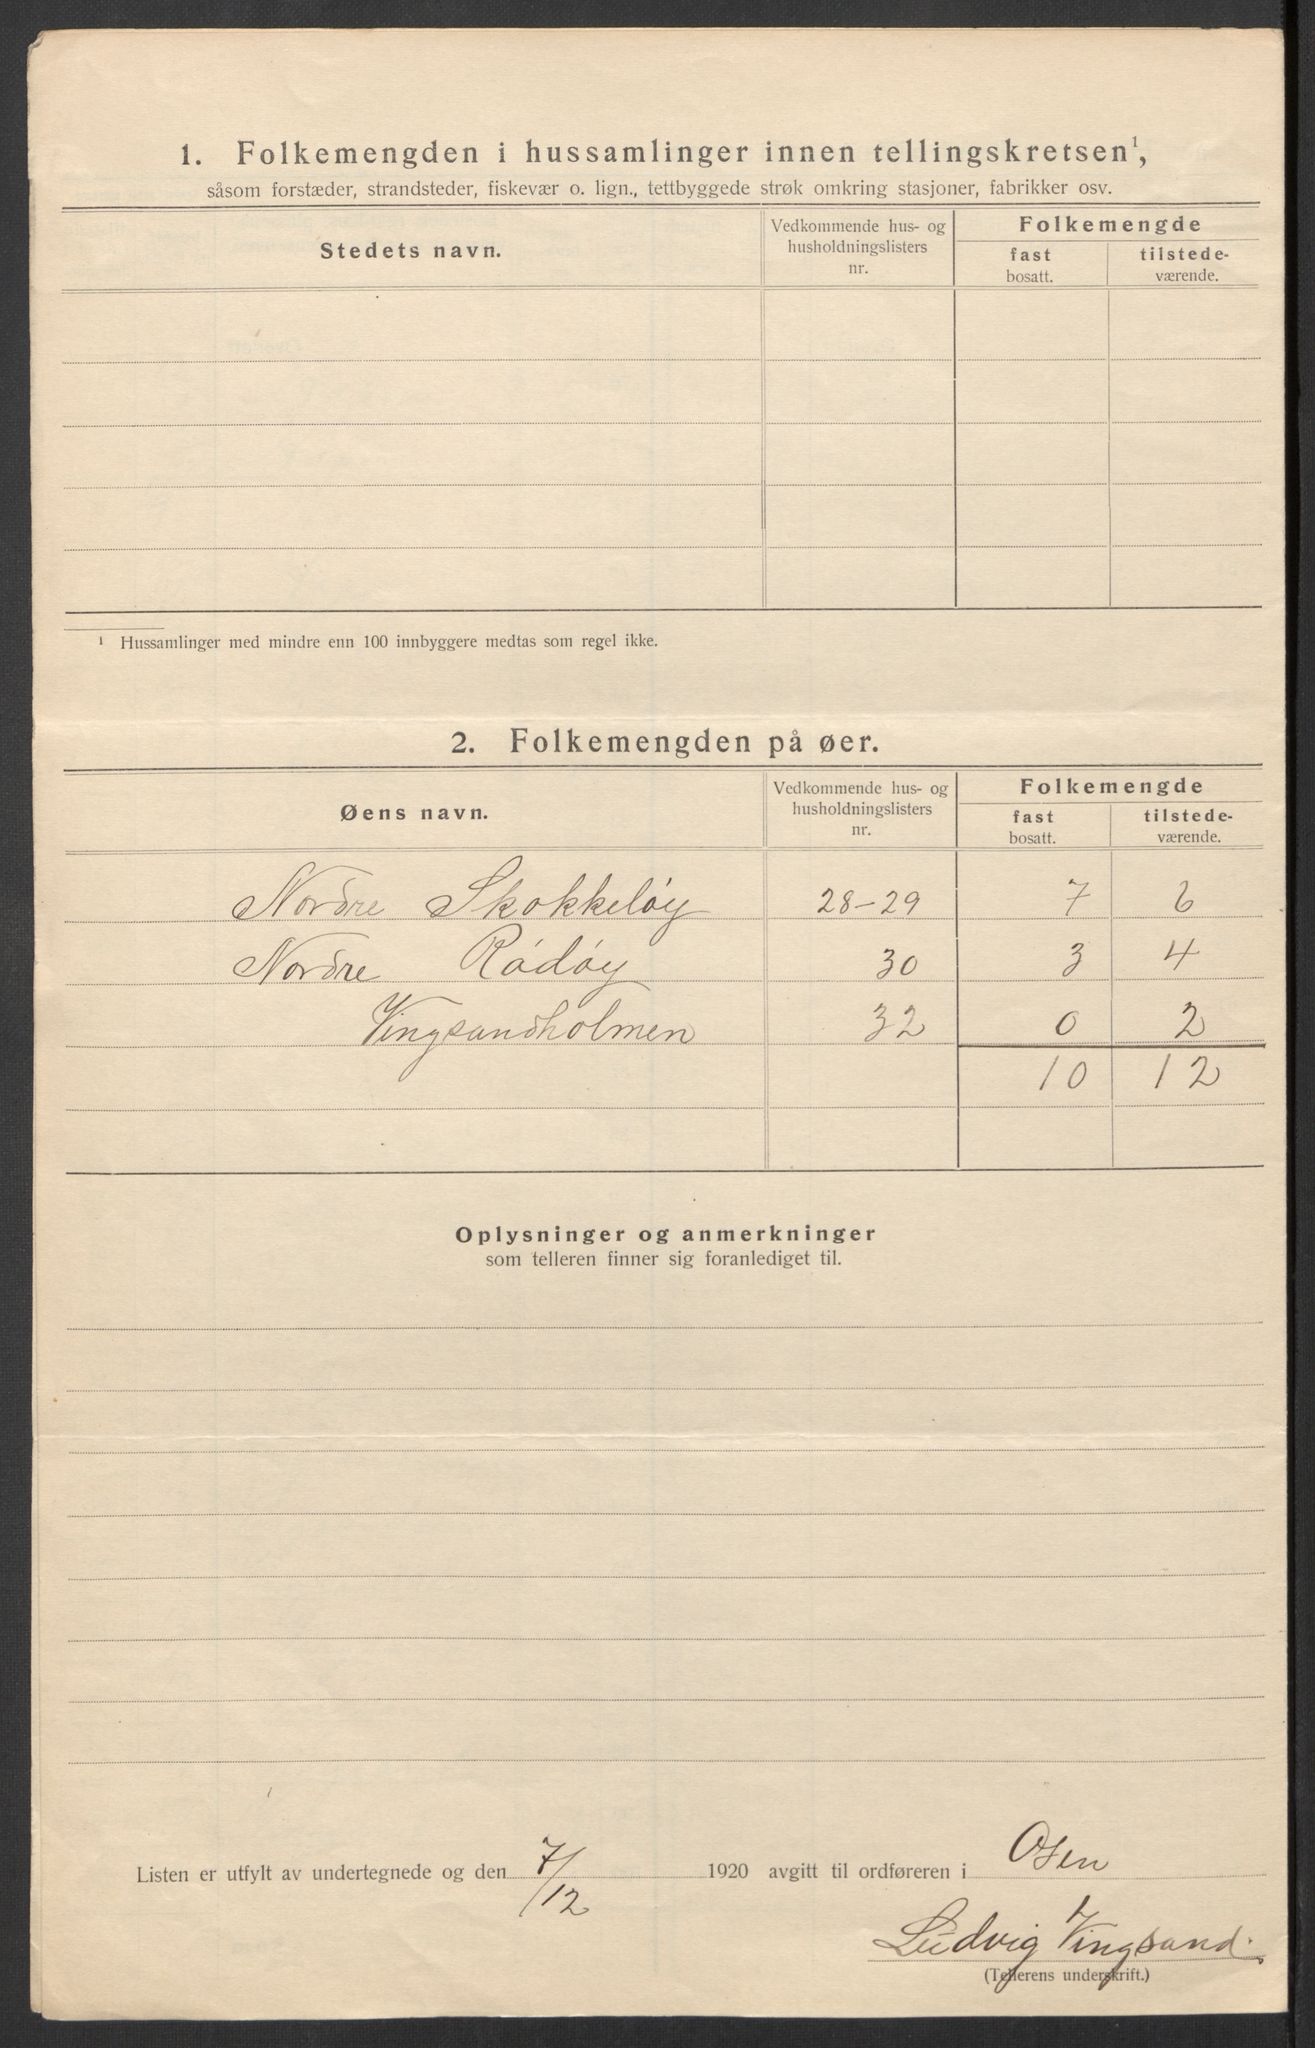 1. Folkemengden i hussamlinger innen tellingskretsen¹,
såsom forstæder, strandsteder, fiskevær o. lign., tettbyggede strøk omkring stasjoner, fabrikker osv.
Stedets navn. Vedkommende hus- og husholdningslisters nr. Folkemengde
fast bosatt. tilstede-værende.
¹ Hussamlinger med mindre enn 100 innbyggere medtas som regel ikke.
2. Folkemengden på øer.
Øens navn. Vedkommende hus- og husholdningslisters nr. Folkemengde
fast bosatt. tilstede-værende.
Nordre Skokkeløy 28-29 7 6
Nordre Rødøy 30 3 4
Vingsandholmen 32 0 2
10 12
Oplysninger og anmerkninger
som telleren finner sig foranlediget til.
Listen er utfylt av undertegnede og den 7/12 1920 avgitt til ordføreren i Osen
Ludvig Vingsand.
(Tellerens underskrift.)